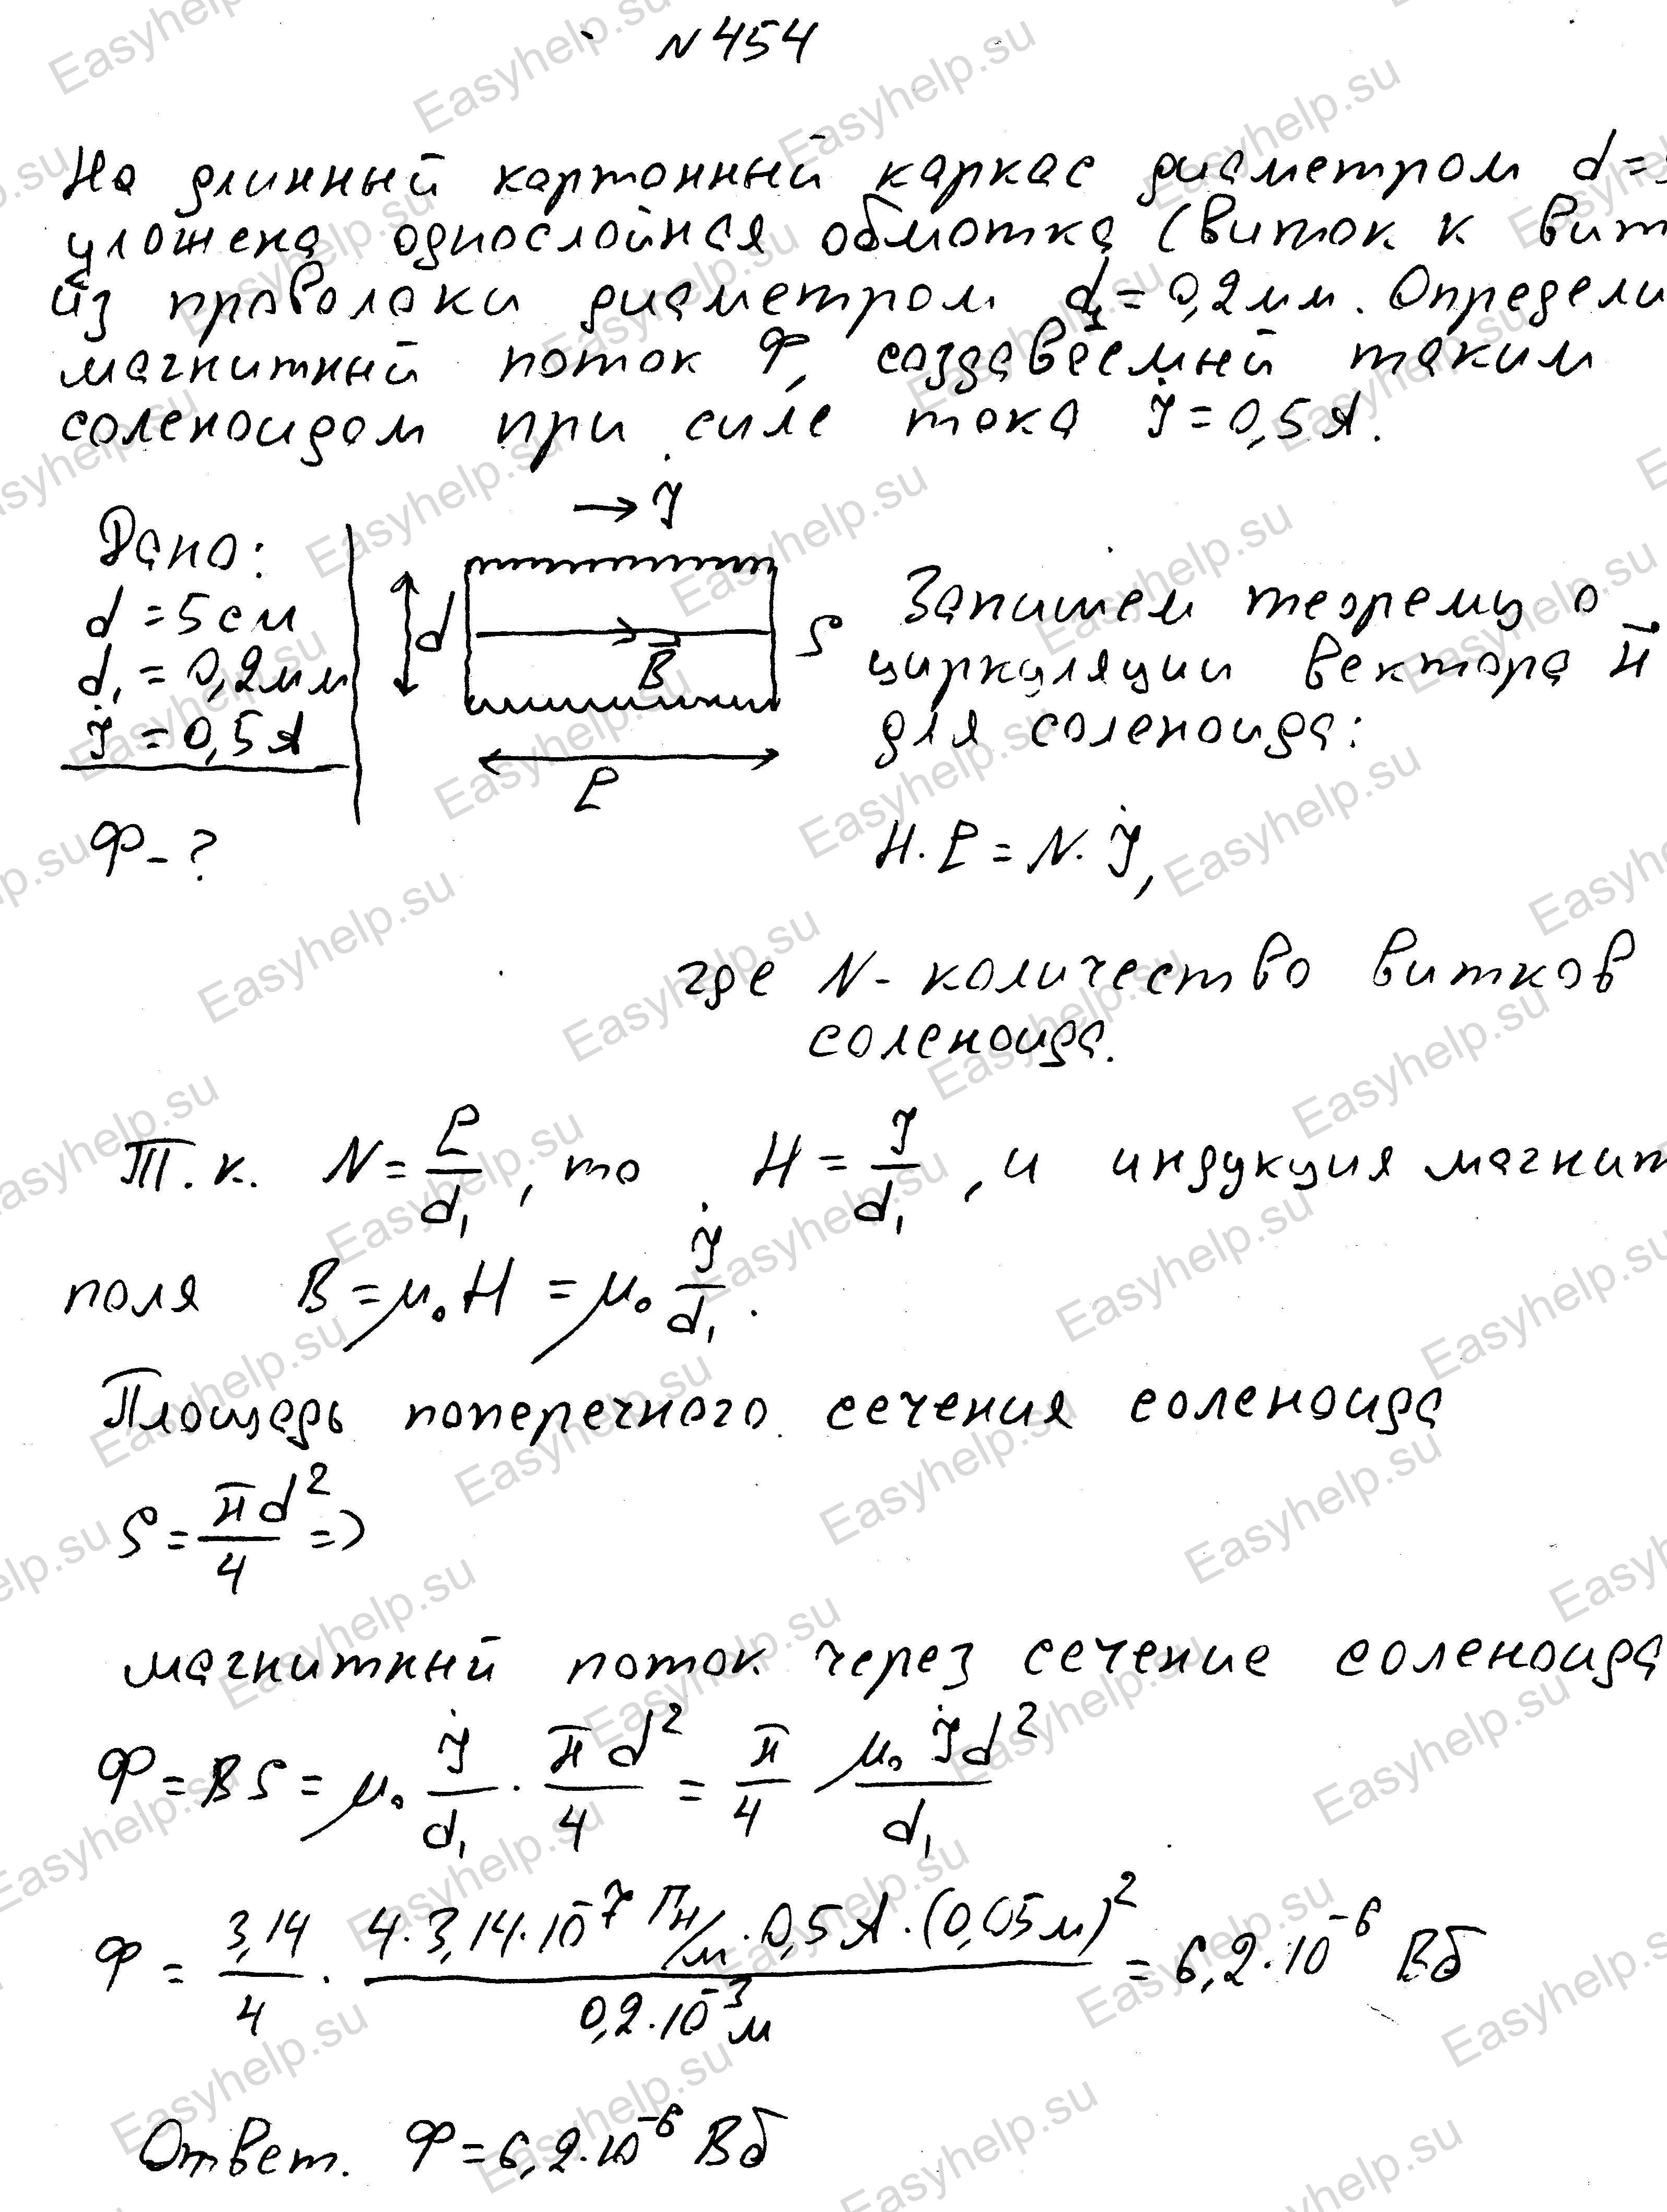 №454
На длинный картонный каркас диаметром d=5
уложена однослойная обмотка (виток к вит
из проволоки диаметром d₁=0,2мм. Определи
магнитный поток Ф, создаваемый таким
соленоидом при силе тока I=0,5A.
Дано:
d=5см
d₁=0,2мм
I=0,5A
Ф-?
→I
d
B⃗
S
l
Запишем теорему о
циркуляции вектора H⃗
для соленоида:
H·l=N·I,
где N-количество витков
соленоида.
Т.к. N=l/d₁, то H=I/d₁, и индукция магнит
поля B=μ₀H=μ₀I/d₁.
Площадь поперечного сечения соленоида
S=πd²/4=>
магнитный поток через сечение соленоида
Ф=BS=μ₀ I/d₁·πd²/4=π/4 μ₀Id²/d₁
Ф=3,14/4·4·3,14·10⁻⁷Гн/м·0,5A·(0,05м)²/0,2·10⁻³м=6,2·10⁻⁶ Вб
Ответ. Ф=6,2·10⁻⁶ Вб
Easyhelp.su